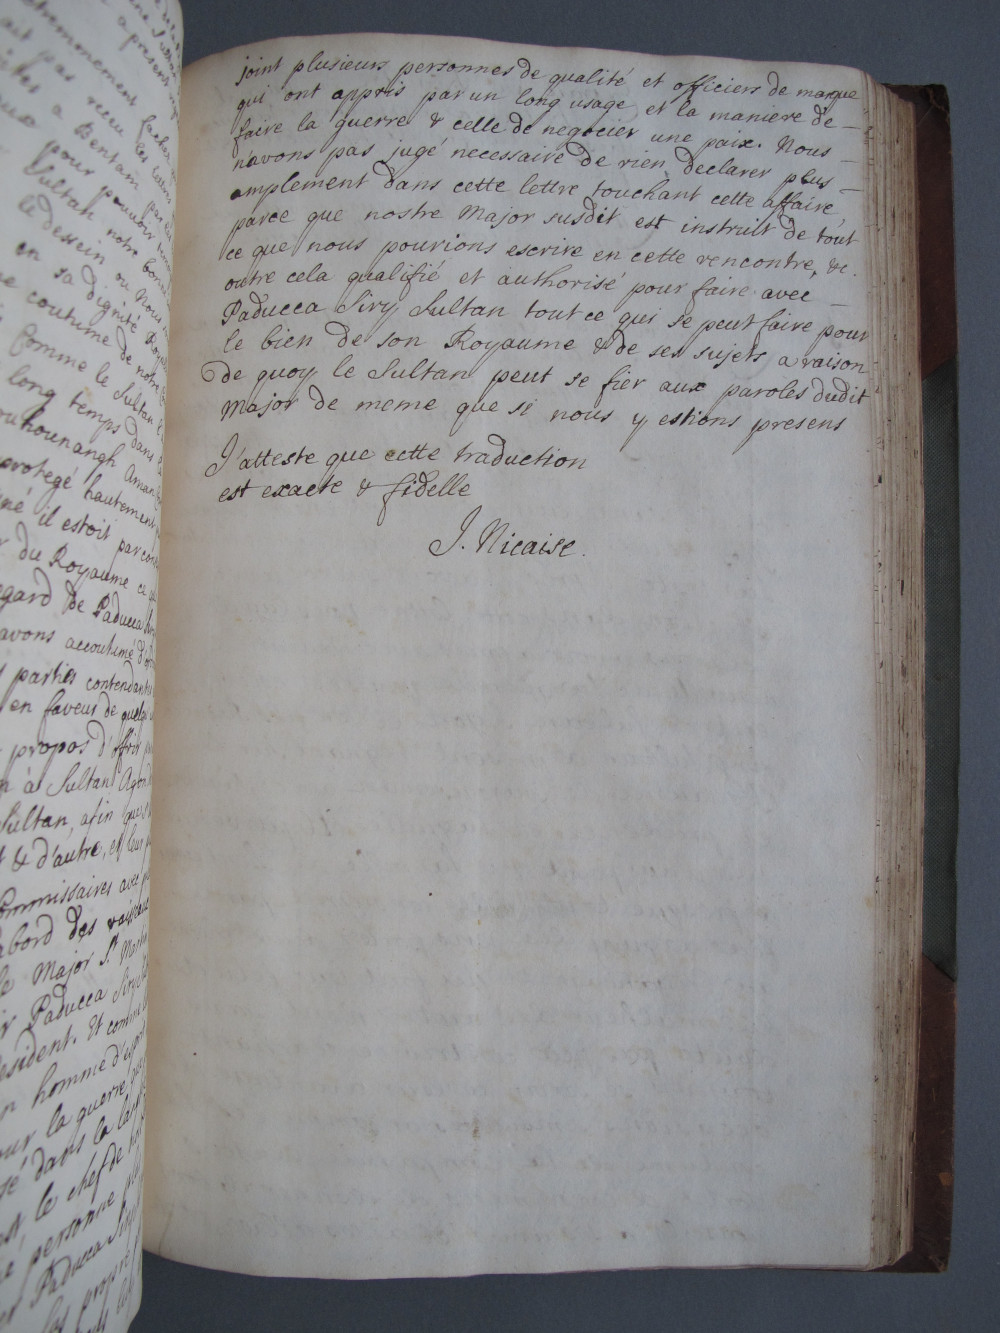 joint plusieurs personnes de qualité et officiers de marque
qui ont appris par un long usage et la maniere de –
faire la guerre & celle de negocier une paix. Nous –
n'avons pas jugé necessaire de rien declarer plus –
amplement dans cette lettre touchant cette affaire,
parce que nostre Major susdit est instruit de tout
ce que nous pourions escrire en cette rencontre, &c.
outre cela qualifié et authorisé pour faire avec –
Paducca Siry Sultan tout ce qui se peut faire pour
le bien de son Royaume & de ses sujets a raison
de quoy le Sultan peut se fier aux paroles dudit
Major de meme que si nous y estions presens
J'atteste que cette traduction
est exacte & fidelle
J. Nicaise.
ait pas receu
a Bentam
pour pouvoir
Sultan notre bonne
le dessein ou Nous
en sa dignité Royale
coutume de notre
Comme le Sultan
long temps dans
protegé hautement
il estoit par
du Royaume ce
egard de Paducca
avons accoutumé
parties contendantes
en faveur de quelqu
propos d'offrir
à Sultan Agon
Sultan, afin que
& d'autre, et leur
Commissaires avec
abord des vaisseaux
le Major St. Martin
Paducca Siry
esident. Et comme
homme d'esprit
la guerre, que
dans la
le chef de
personne
Paducca Siry
propre